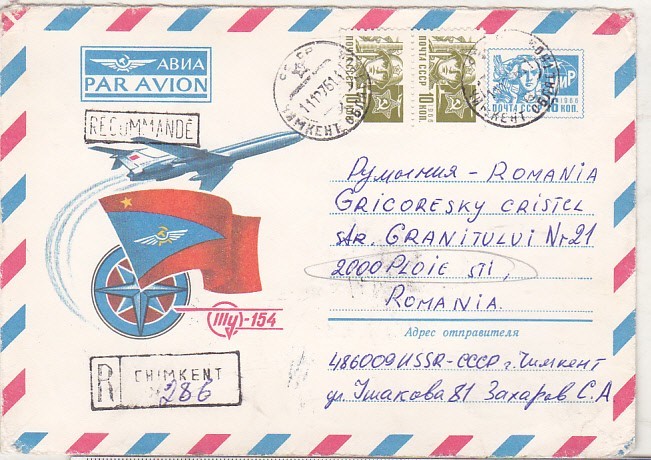 АВИА
PAR AVION
RECOMMANDÉ
СССР
11 12 76 14
ЧИМКЕНТ ОБЛ
ПОЧТА СССР
10 КОП.
ПОЧТА СССР
10 КОП.
ПОЧТА СССР
МИР
1966
6 КОП.
ЧИМКЕНТ ОБЛ
Румыния - ROMANIA
GRIGORESKY CRISTEL
STR. GRANITULUI Nr 21
2000 PLOIE STI,
ROMANIA.
Ту-154
Адрес отправителя
486009 USSR-СССР г. Чимкент
ул. Ушакова 81 Захаров С.А
R CHIMKENT
№ 286